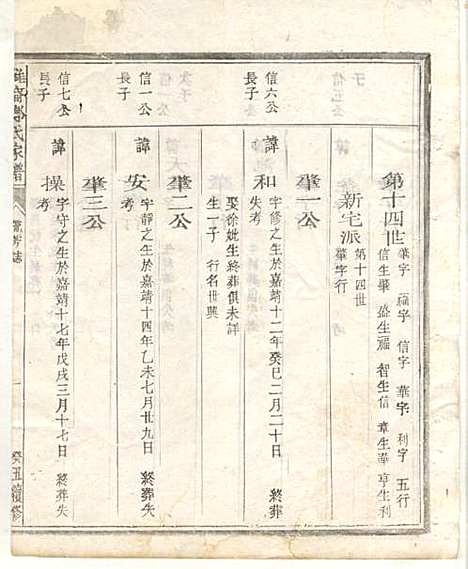 第十四世
肇字 福字 信字 華字 利字 五行
信生肇 盛生福 智生信 章生華 亨生利
新宅派
第十四世
肇字行
信六公
長子
肇一公
諱和
字修之生於嘉靖十二年癸巳二月二十日 終葬
失考
娶徐妣生終葬俱未詳
生一子 行名世興
信一公
長子
肇二公
諱安
字靜之生於嘉靖十四年乙未七月廿九日 終葬失
考
信七公
長子
肇三公
諱操
字守之生於嘉靖十七年戊戌三月十七日 終葬失
考
氏家譜
癸丑續修